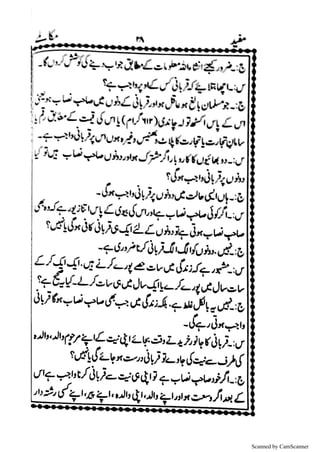 مفید ۲۹ مکالمے
ج:۔ ضرور کیجئے انشاءاللہ معلومات کے مطابق جواب دینے کی کوشش کروں گا۔
س:۔ اچھا بتلایئے کہ قربانی کس کے اوپر واجب ہے؟
ج:۔ جو مسلمان بالغ ہو عاقل ہو اور قربانی کے دنوں میں صاحب نصاب ہو یعنی
اس کے پاس تولہ چاندی (۶۱۲ گرام) یا اس کی قیمت کے مطابق رقم یا
سامان تجارت یا تجارت کا پلاٹ وغیرہ ہوں اس پر قربانی واجب ہے۔
س:۔ دو بھائیوں کا کاروبار اگر مشترک ہو اور دونوں صاحب نصاب ہیں تو کیا
دونوں پر قربانی واجب ہوگی؟
ج:۔ ہاں ایسی حالت میں دونوں پر قربانی واجب ہوگی۔
س:۔ اگر کوئی صاحب نصاب ہے اور اس کی بیوی کے پاس اتنا زیور ہے کہ وہ بھی
صاحب نصاب ہوتی ہے تو دونوں کے لئے ایک ہی قربانی کافی ہوگی یا نہیں؟
ج:۔ نہیں، دونوں کو الگ الگ قربانی کرنا ضروری ہے۔
س:۔ مشہور ہے کہ زندگی میں سات حصے پورے کرنے ہیں، ایک ایک کر کے
سات سال میں پورے کرے یا ایک سال میں ہی سات کر لے۔ کیا یہ صحیح ہے؟
ج:۔ نہیں یہ بالکل غلط ہے، بلکہ زندگی میں جب بھی صاحب نصاب ہوگا قربانی
واجب ہوتی رہے گی۔
س:۔ قربانی کا جانور خریدتے وقت بجائے اپنی نیت کے اپنے مرحوم والد، والدہ
کی طرف سے نیت کی جاوے تو قربانی درست ہو جائے گی یا نہیں؟
ج:۔ اگر خود صاحب نصاب ہے تو اپنی ہی نیت سے قربانی کرنا واجب ہے اس
کے بعد اگر وسعت ہو اور اپنے والد، اپنی والدہ، اپنے پیر، اپنے کسی رشتہ دار
Scanned by CamScanner